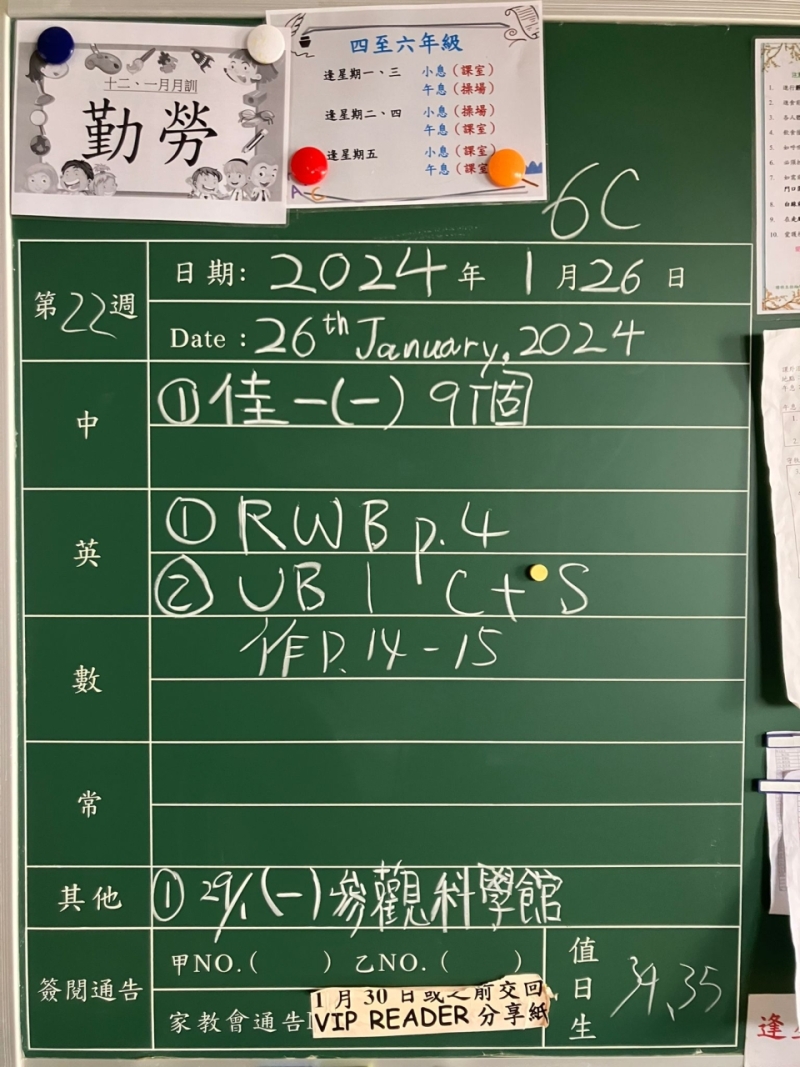 十二、一月月訓
勤勞
四至六年級
逢星期一、三 小息（課室）
午息（操場）
逢星期二、四 小息（操場）
午息（課室）
逢星期五 小息（課室
午息（課室
6C
第22週
日期: 2024年1月26日
Date : 26th January, 2024
中
①佳一(一) 9個
英
① RWB p.4
② UB 1 C+S
數
作P.14-15
常
其他
① 29/1 (一) 參觀科學館
簽閱通告
甲NO.( ) 乙NO.( )
家教會通告
1月30日或之前交回
VIP READER 分享紙
值日生
34、35
逢